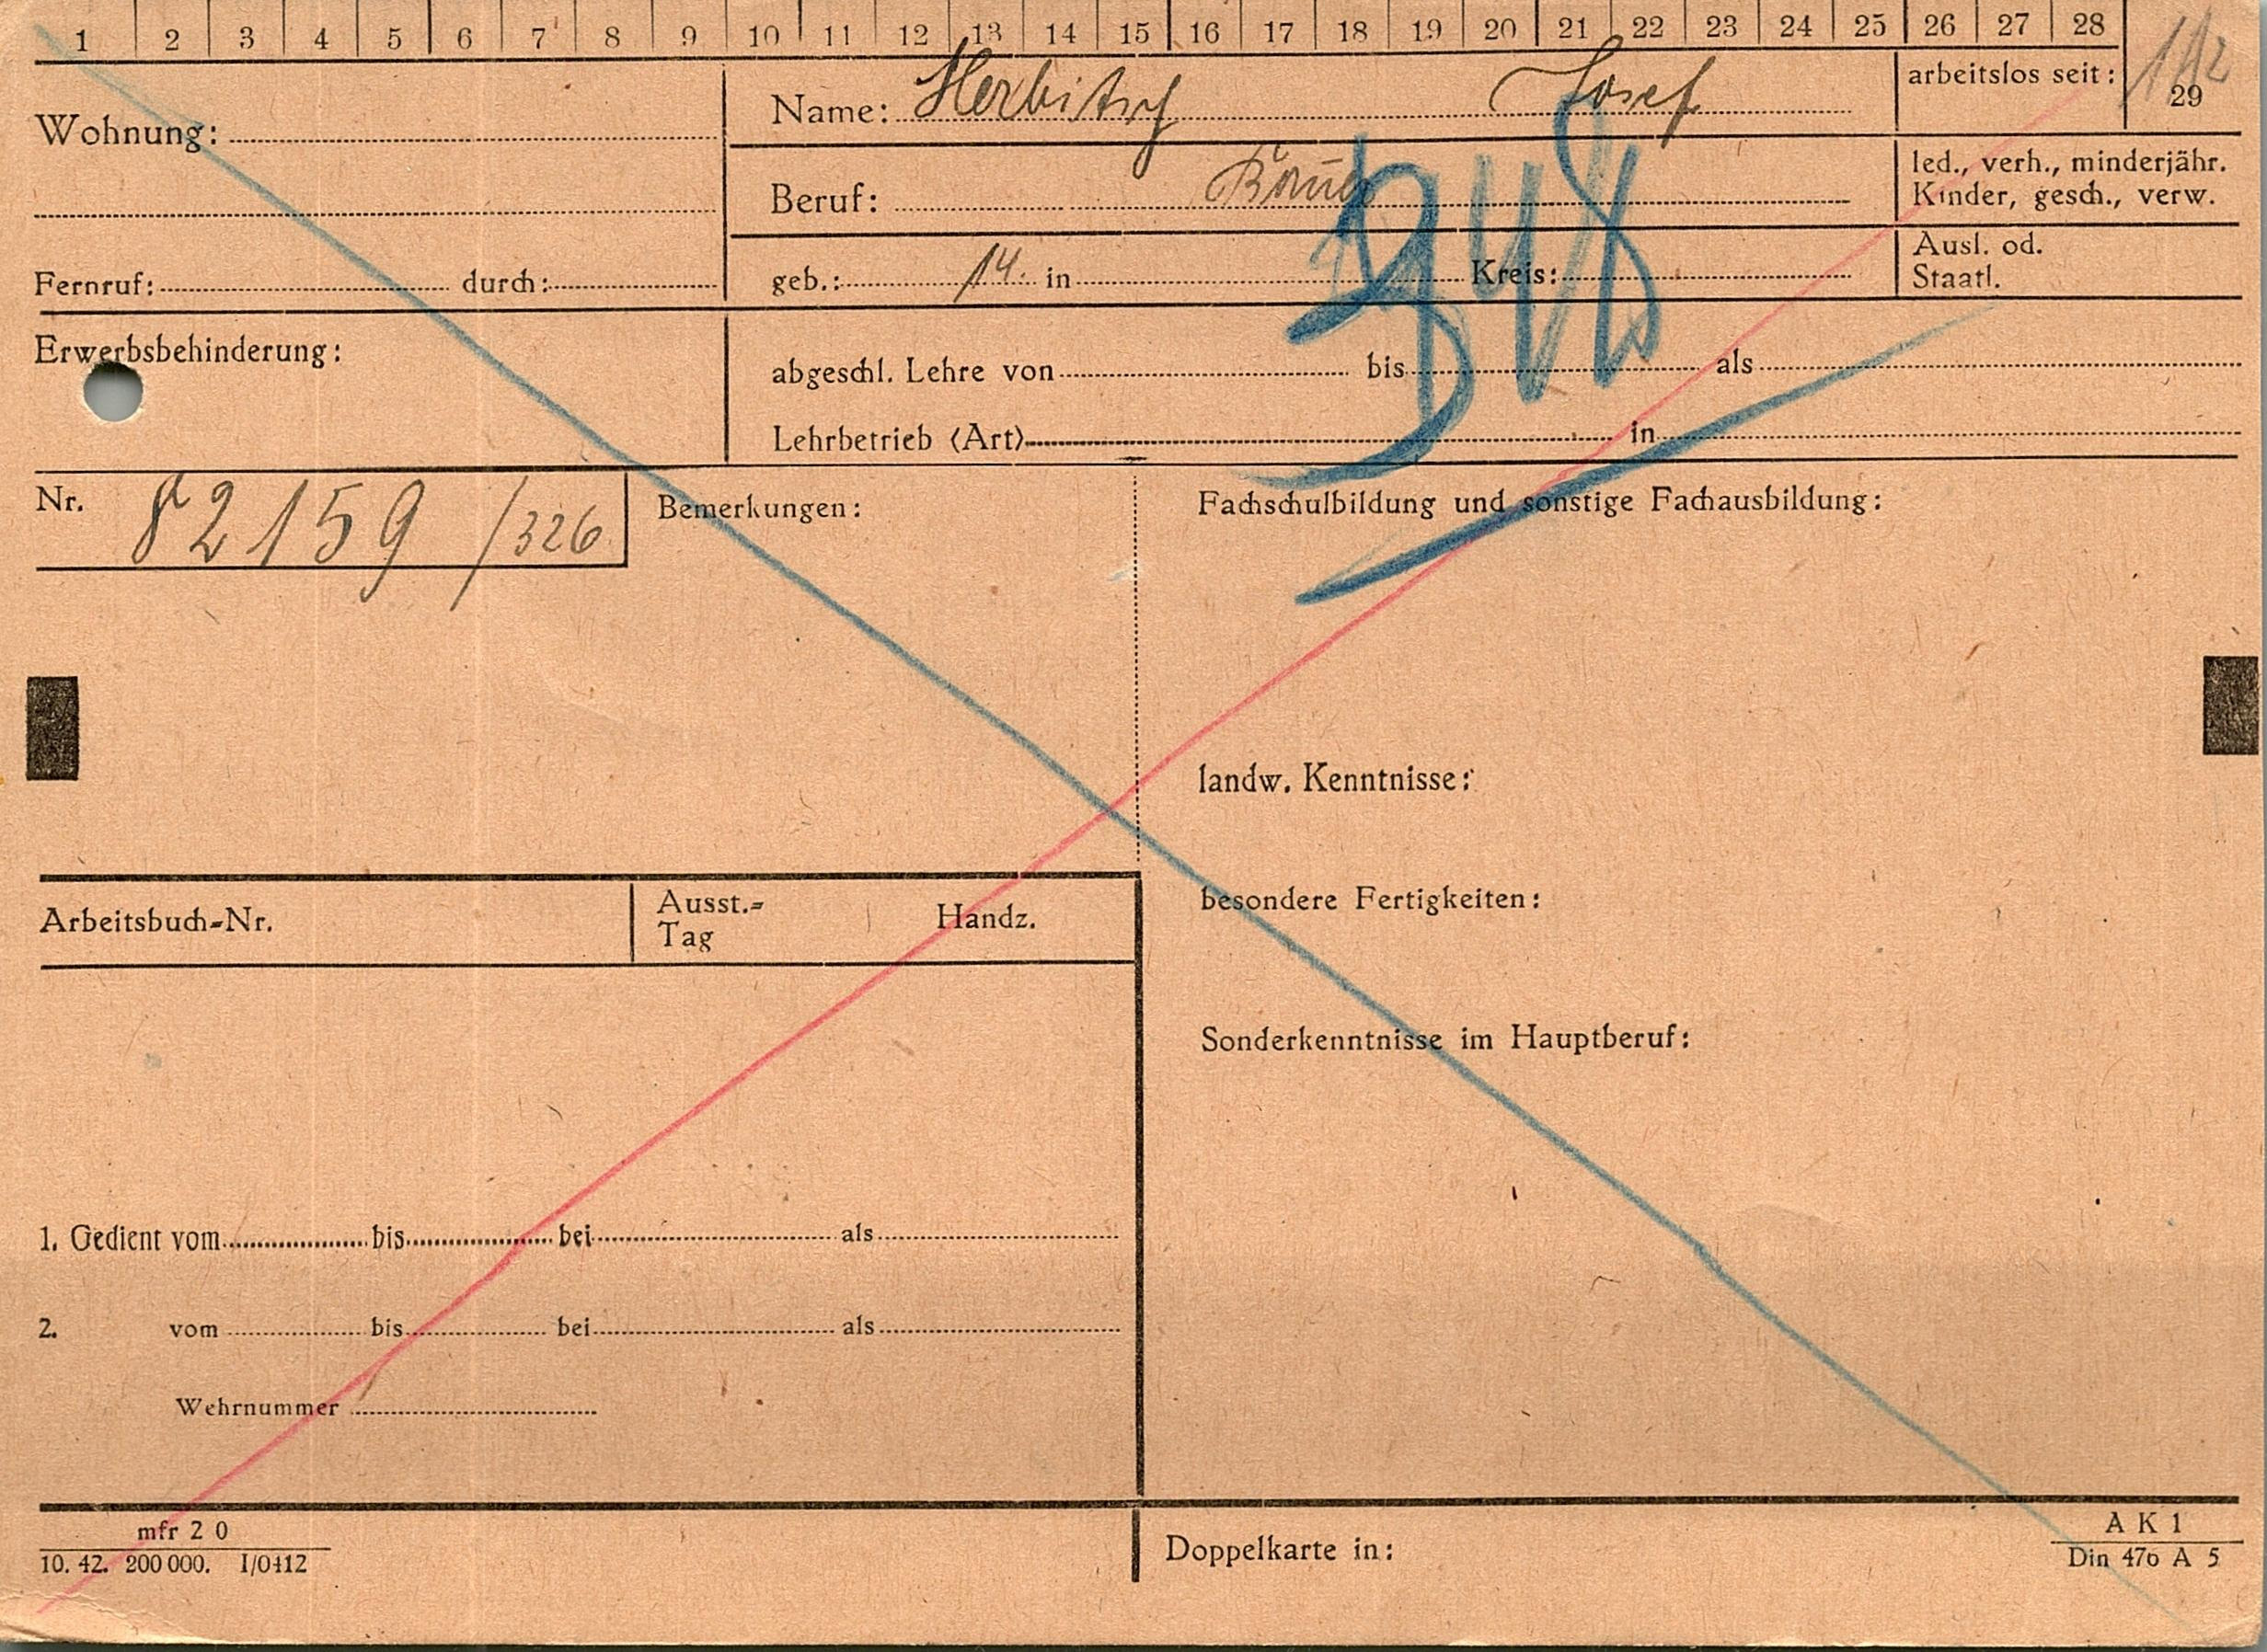 1 2 3 4 5 6 7 8 9 10 11 12 13 14 15 16 17 18 19 20 21 22 23 24 25 26 27 28
112
29
Wohnung:
Name: Herbitsch Josef
arbeitslos seit:
Beruf:
led., verh., minderjähr.
Kinder, gesch., verw.
Fernruf: durch:
geb.: 14. in Kreis:
Ausl. od.
Staatl.
Erwerbsbehinderung:
abgeschl. Lehre von bis als
Lehrbetrieb (Art) in
Nr. 82159 /326
Bemerkungen:
Fachschulbildung und sonstige Fachausbildung:
landw. Kenntnisse:
Arbeitsbuch-Nr.
Ausst.-
Tag
Handz.
besondere Fertigkeiten:
Sonderkenntnisse im Hauptberuf:
1. Gedient vom bis bei als
2. vom bis bei als
Wehrnummer
mfr 2 0
10. 42. 200 000. I/0412
Doppelkarte in:
A K 1
Din 476 A 5